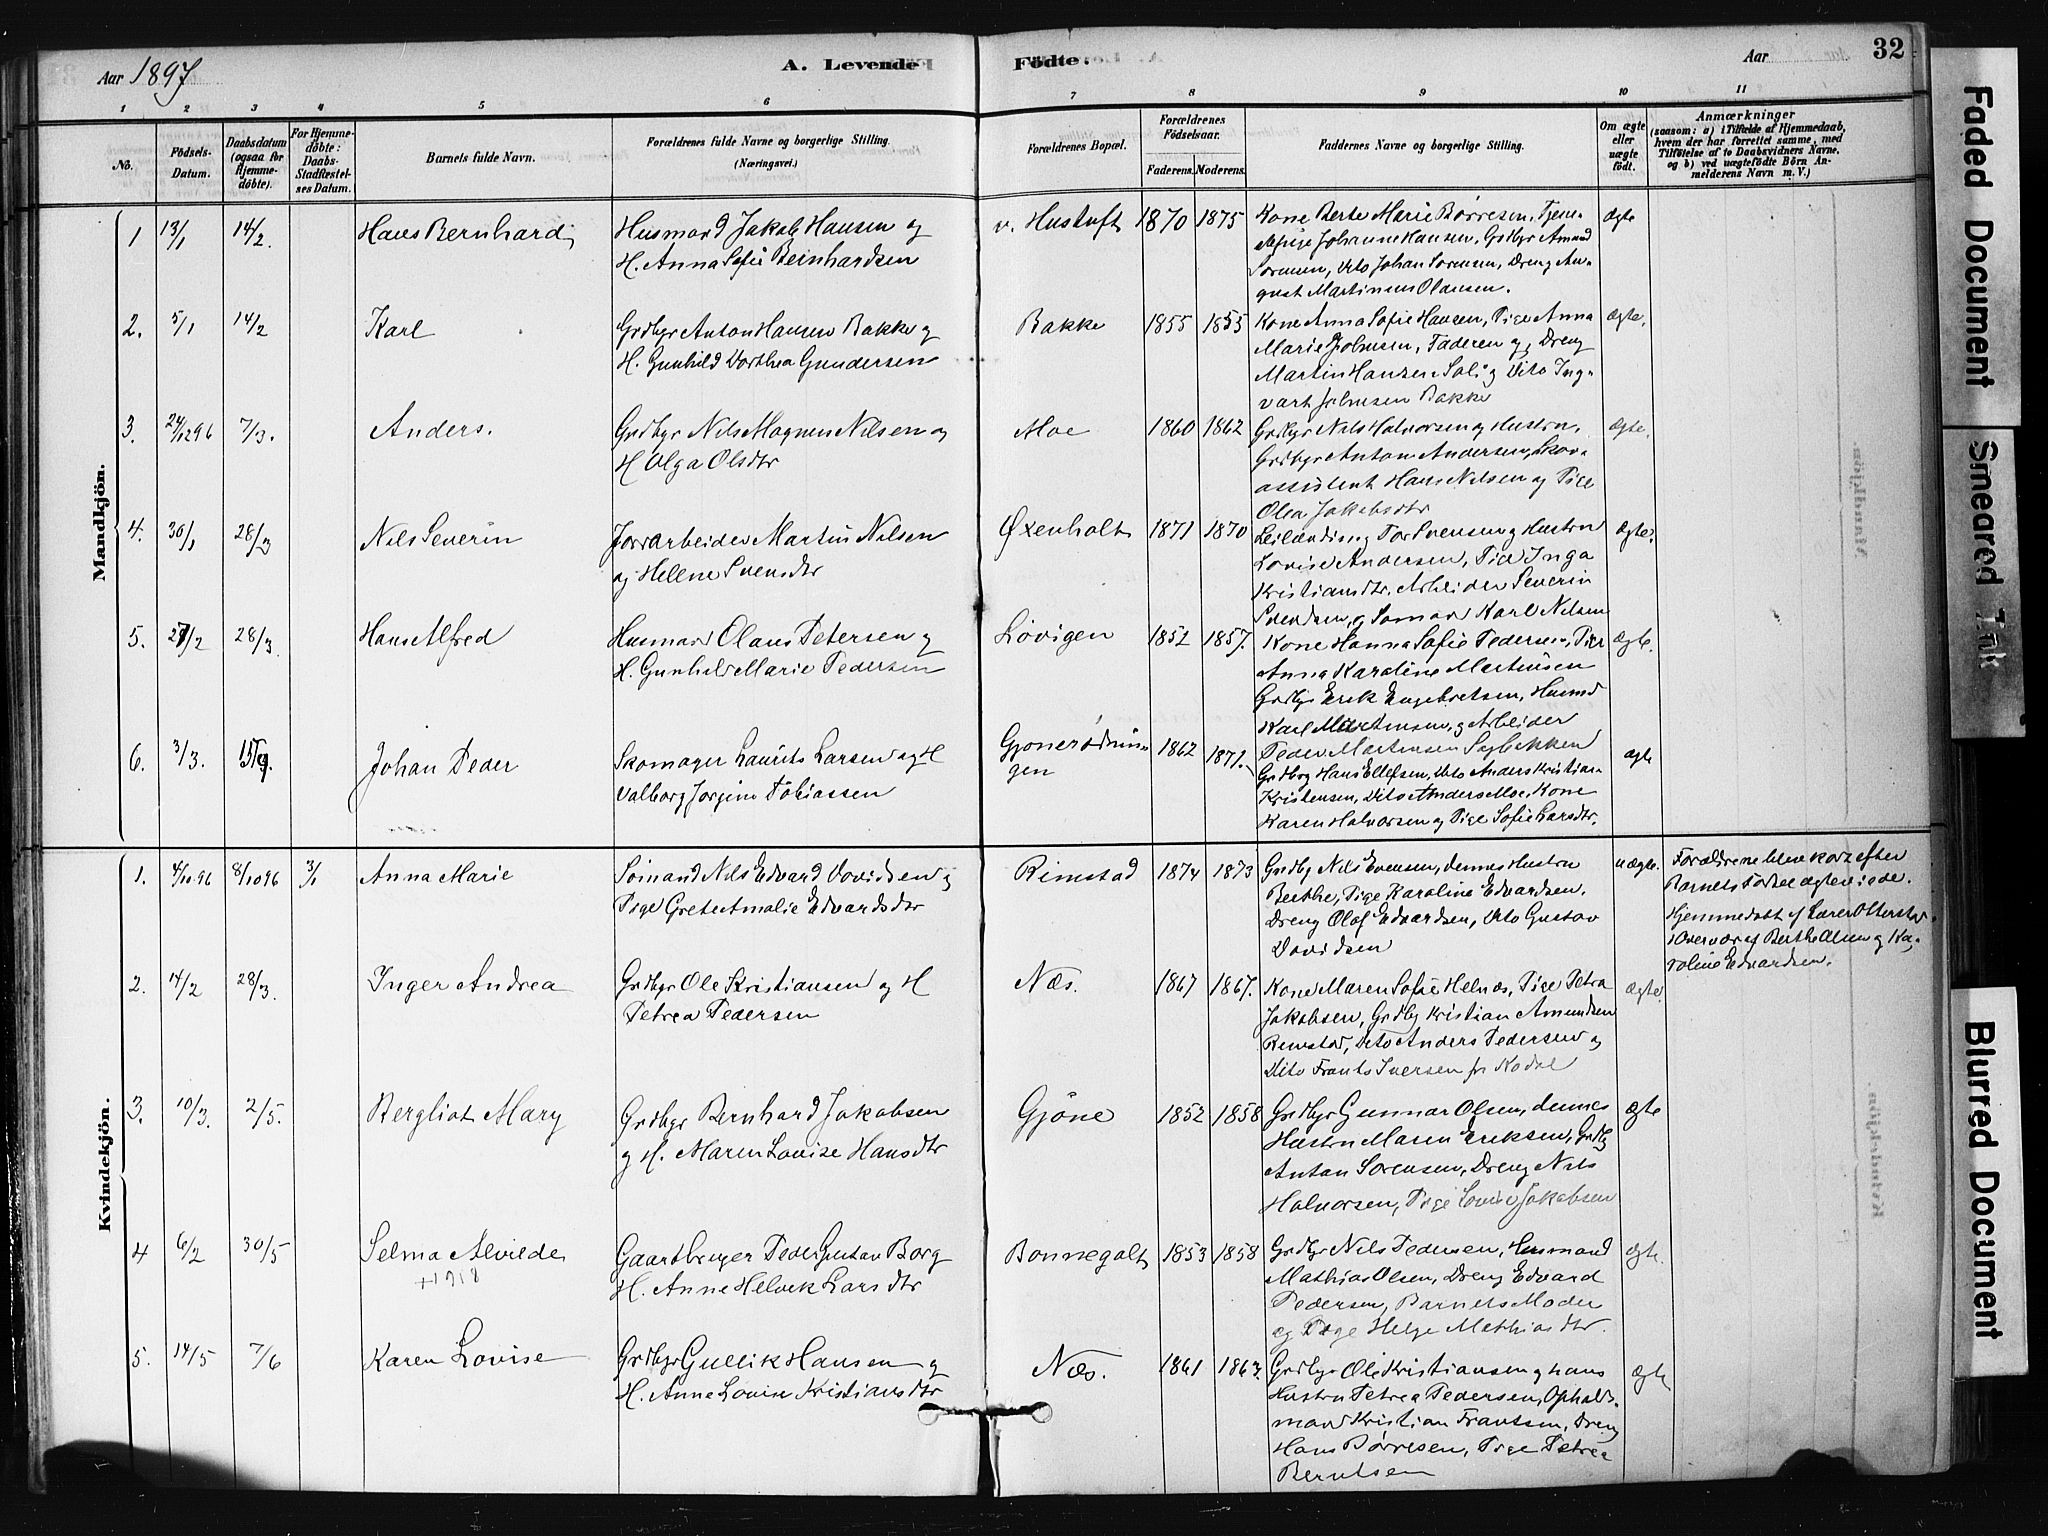 Aar 1897
A. Levende
Födte.
Aar
32
1 2 3 4 5 6 7 8 9 10 11
No.
Födsels-Datum.
Daabsdatum (ogsaa for Hjemmedöbte).
For Hjemmedöbte: Daabs-Stadfæstelses Datum.
Barnets fulde Navn.
Forældrenes fulde Navne og borgerlige Stilling. (Næringsvei.)
Forældrenes Bopæl.
Forældrenes Födselsaar.
Faderens. Moderens.
Faddernes Navne og borgerlige Stilling.
Om ægte eller uægte födt.
Anmærkninger
(saasom: a) i Tilfælde af Hjemmedaab,
hvem der har forrettet samme, med
Tilföielse af to Daabsvidners Navne.
og b) ved uægtefödte Börn Anmelderens Navn m. V.)
Mandkjön.
1 13/1 14/2. Hans Bernhard
Husmand Jakob Hansen og
H. Anna Sofie Beinhardsen
v. Hustuft 1870 1875
Kone Berte Marie Børresen, Tjene-
stepige Johanne Hansen, Grdbgr Amund
Sørensen, Dito Johan Sørensen, Dreng Au-
gust Martinius Olausen.
Ægte
2. 5/1 14/2 Karl
Grdbgr Anton Hansen Bakke og
H. Gunhild Dorthea Gundersen
Bakke 1855 1855
Kone Anna Sofie Hansen, Pige Anna
Marie Johnsen, Faderen og Dreng
Martin Hansen Soli og Dito Ing-
vart Johnsen Bakke
Ægte.
3. 24/12 96 7/3. Anders.
Grdbgr Nils Magnus Nilsen og
H Olga Olsdtr
Moe 1860 1862
Grdbgr Nils Halvorsen og Hustru,
Grdbgr Anton Andersen, Skov-
assistent Hans Nilsen og Pige
Olea Jakobsdtr
Ægte.
4. 30/1 28/3 Nils Severin
Jordarbeider Martin Nilsen
og Helene Svensdtr
Øxenholt 1871 1870
Leilænding Tor Svensen og Hustru
Lovise Andersen, Pige Inga
Kristiansdtr. Arbeider Severin
Svendsen, og Sømand Karl Nilsen
Ægte.
5. 27/2 28/3. Hans Alfred
Husmand Olaus Petersen og
H. Gunhild Marie Pedersen
Løvigen 1852 1857.
Kone Hanna Sofie Pedersen, Pige
Anna Karoline Martinsen
Grdbgr Erik Engebretsen, Husmd
Karl Martinsen, og Arbeider
Peder Martinsen Sagbakken
Ægte.
6. 3/3. Johan Peder
Skomager Laurits Larsen og H
Valborg Jorgine Tobiassen
1862 1871.
Grdbrg Hans Ellefsen, Dito Anders Kristian
Kristensen, Dito Anders Moe, Kone
Karen Halvorsen og Pige Sofie Larsdtr.
ægte
Kvindekjön.
1. 4/10 96 8/10 96 3/1 Anna Marie
Sömand Nils Edvard Davidsen og
Pige Grete Amalie Edvardsdtr
Rimstad 1874 1873
Grdbg Nils Evensen, dennes Hustru
Berthe, Pige Karoline Edvardsen.
Dreng Olaf Edvardsen, Dito Gustav
Davidsen
uægte.
Forældrene bleve kort efter
Barnets Fødsel ægteviede.
Hjemmedøbt af Lærer Otterstad
i Overvær af Berthe Olsen og Ka-
roline Edvardsen.
2. 14/2 28/3. Inger Andrea
Grdbgr Ole Kristiansen og H
Petrea Pedersen
Næs. 1867 1867.
Kone Maren Sofie Helnæs, Pige Petra
Jakobsen, Grdbg Kristian Amundsen
Rimstad, Dito Anders Pedersen og
Dito Frants Iversen fr Kodal
ægte.
3. 10/3. 2/5. Bergliot Mary
Grdbgr Bernhard Jakobsen
og H. Maren Lovise Hansdtr
Gjöne 1852 1858
Grdbgr Gunnar Olsen, dennes
Hustru Maren Eriksen, Grdbg
Anton Sørensen, Dreng Nils
Halvorsen, Pige Lovise Jakobsen
Ægte
4 6/2 30/5 Selma Alvilde
+1918
Gaardbruger Peder Gustav Borg
H. Anne Helvek Larsdtr
Bonnegolt 1853 1858
Grdbgr Nils Pedersen, Husmand
Mathias Olsen, Dreng Edvard
Pedersen, Barnets Moder
og Pige Helge Mathiasdtr.
ægte.
5. 14/5 7/6 Karen Lovise
Grdbgr Gullik Hansen og
H. Anne Lovise Kristiansdtr
Næs. 1861 1863.
Grdbgr Ole Kristiansen og hans
Hustru Petrea Pedersen, Opholds-
mand Kristian Frantsen, Dreng
Hans Børresen, Pige Petrea
Berntsen
Ægte
Faded Document
Smeared Ink
Blurred Document